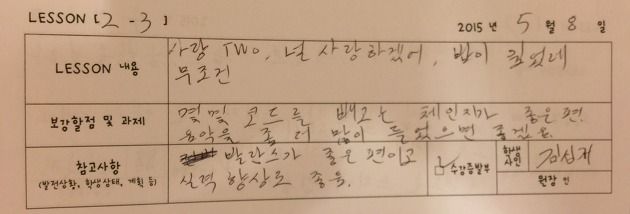 LESSON [2-3] 2015 년 5 월 8 일
LESSON 내용
사랑 TWO, 널 사랑하겠어, 밤이 깊었네
무조건
보강할점 및 과제
몇몇 코드를 빼고는 체인지가 좋은 편.
음악을 좀 더 많이 들었으면 좋겠음.
참고사항
(발전상황, 학생상태, 계획 등)
발란스가 좋은 편이고
실력 향상도 좋음.
수강증발부
학생 사인
원장 인